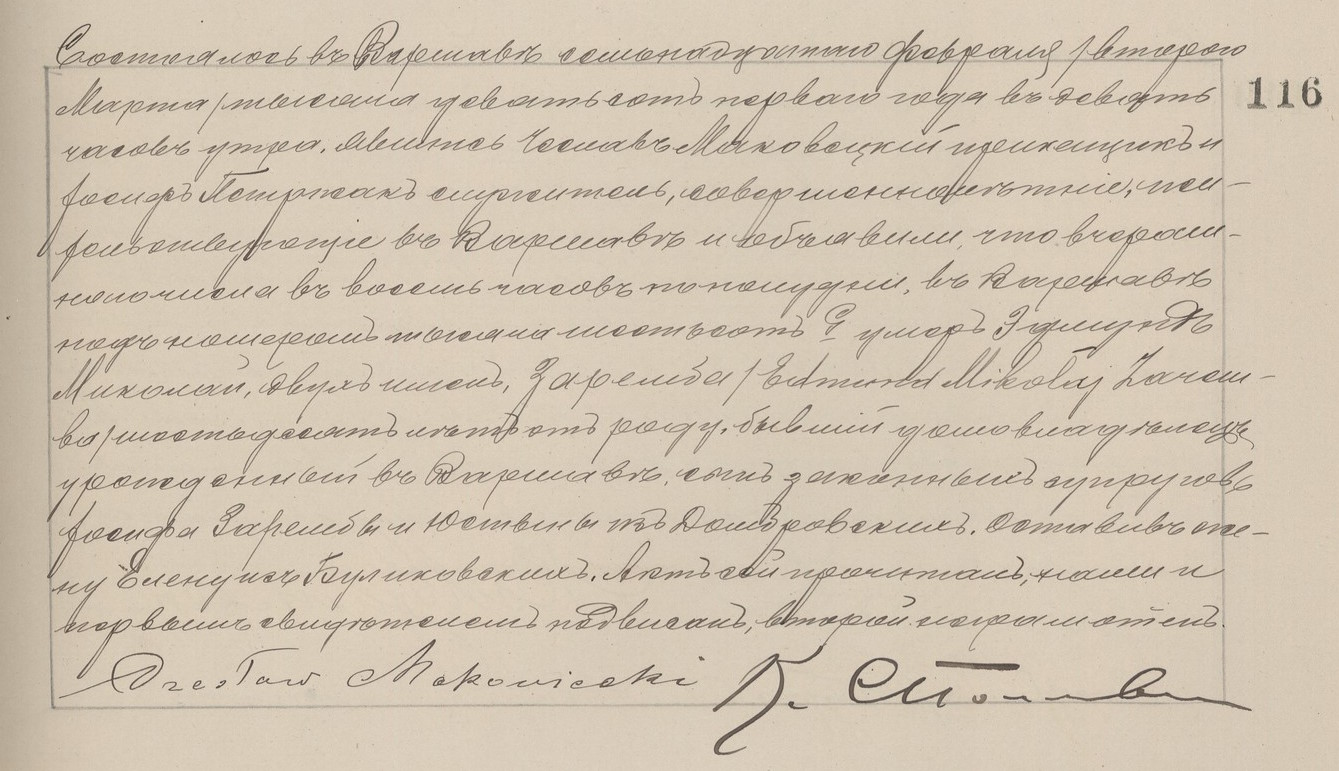 Состоялось въ Варшавѣ семнадцатаго февраля /второго
116
Марта/ тысяча девятьсотъ перваго года въ девять
часовъ утра. Явились Чеславъ Маковецкій прикащикъ и
Іосифъ Петржакъ служитель, совершеннолѣтніе, жи-
тельствующіе въ Варшавѣ и объявили, что вчераш-
няго числа въ восемь часовъ по полудни, въ Варшавѣ
подъ номеромъ тысяча шестьсотъ умеръ Эдмундъ
Миколай, двухъ именъ, Заремба /Edmund Mikołaj Zarem-
ba/ шестьдесятъ лѣтъ отъ роду, бывшій домовладѣлецъ
урожденный въ Варшавѣ, сынъ законныхъ супруговъ
Іосифа Зарембы и Юстыны изъ Домбровскихъ. Оставивъ же-
ну Елену изъ Куликовскихъ. Актъ сей прочитанъ, нами и
первымъ свидѣтелемъ подписанъ, второй неграмотенъ.
Czesław Makowiecki К.